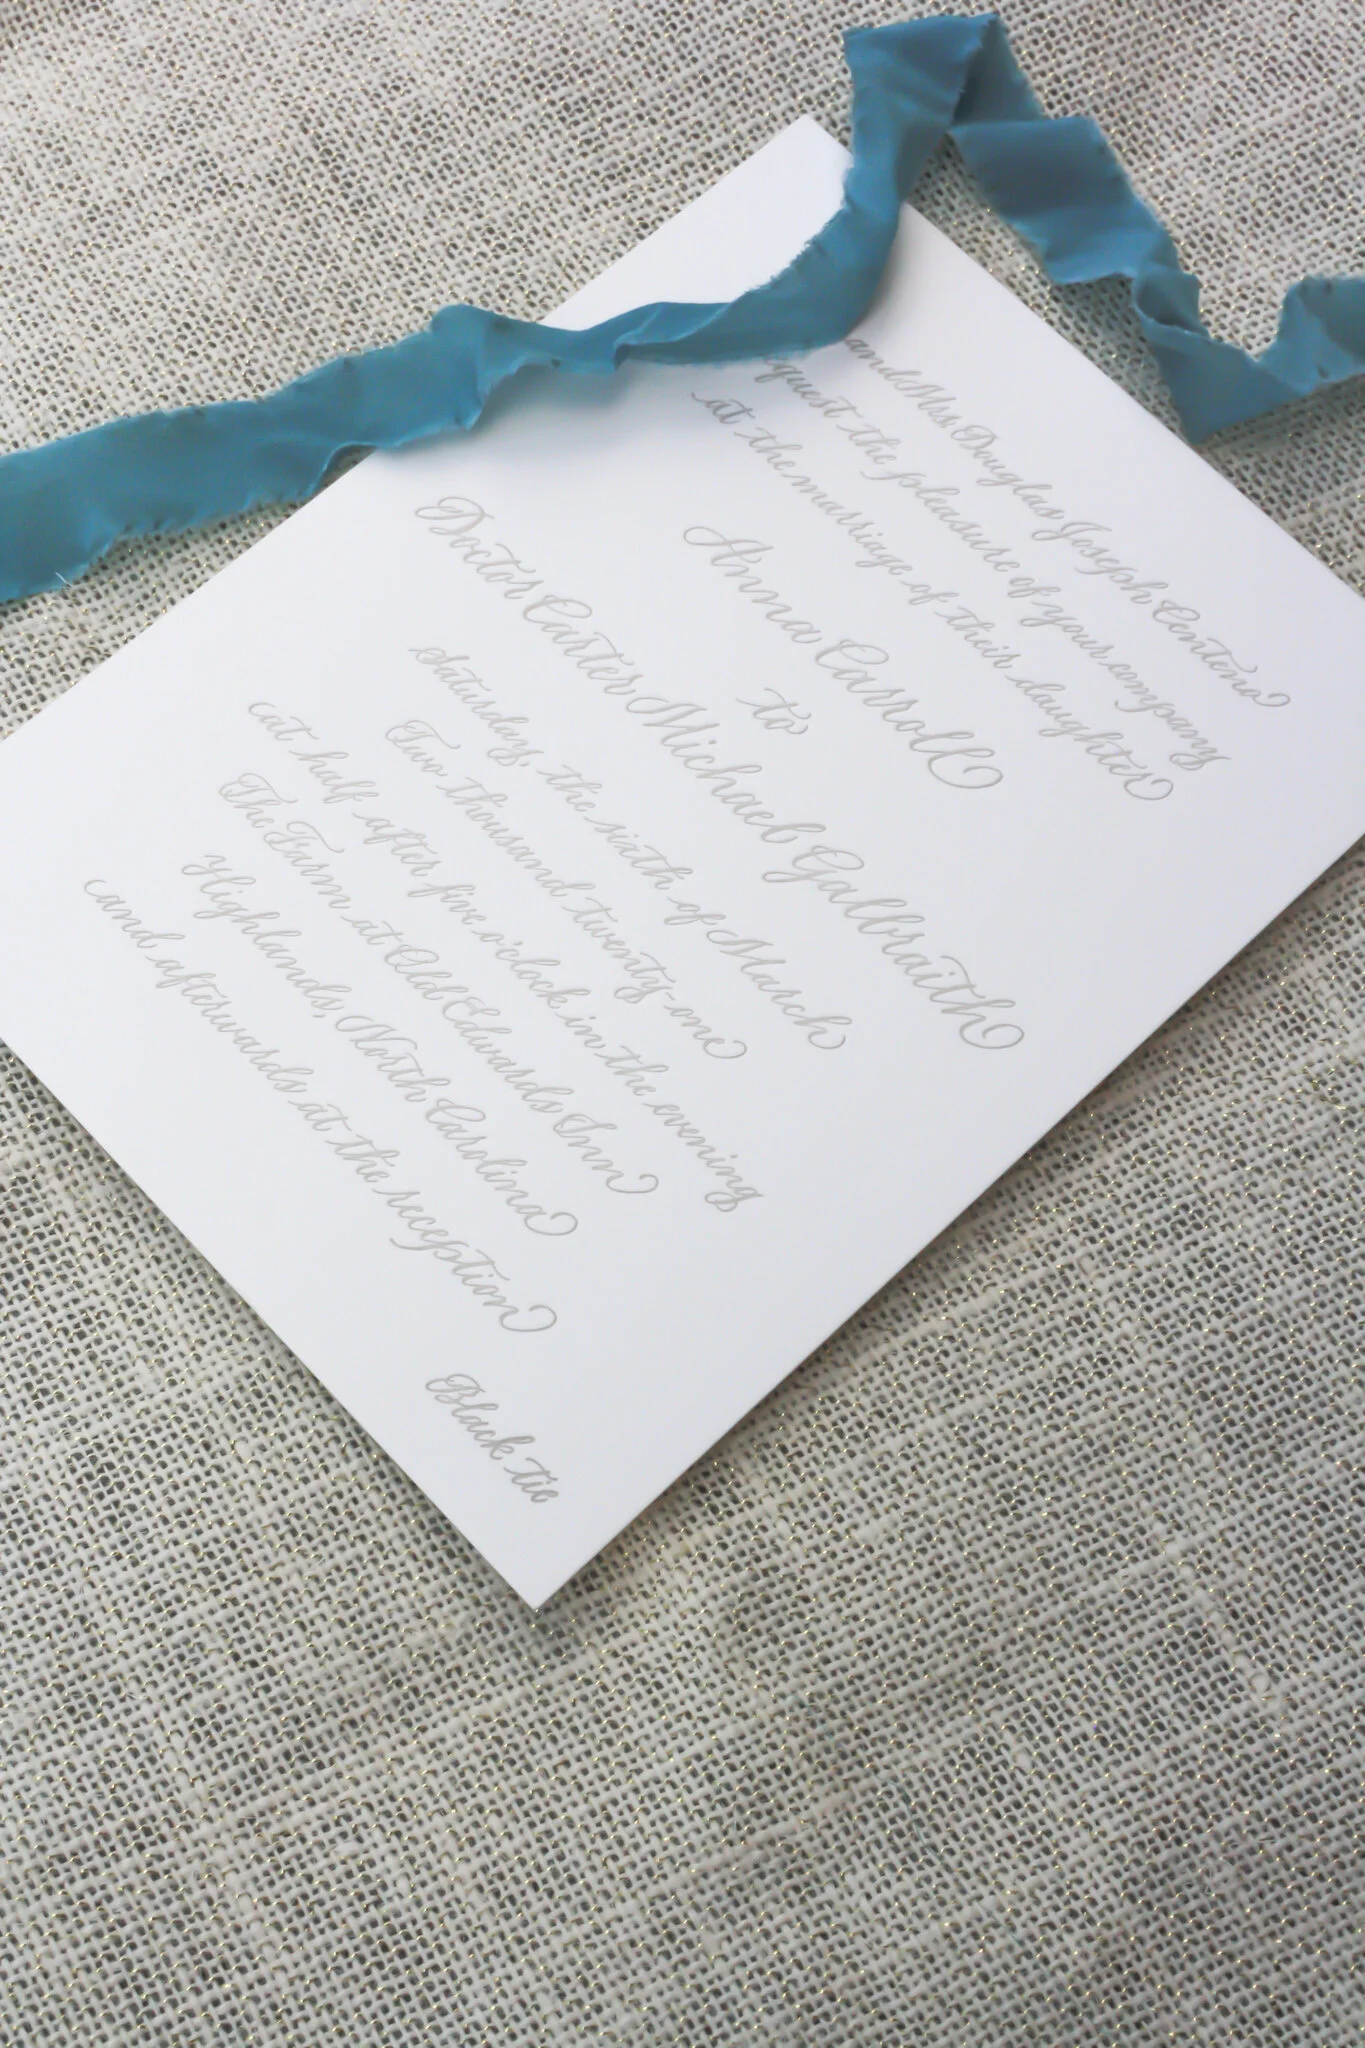 and Mrs. Douglas Joseph Centeno
quest the pleasure of your company
at the marriage of their daughter
Anna Carroll
to
Doctor Carter Michael Galbraith
Saturday, the sixth of March
Two thousand twenty-one
at half after five o'clock in the evening
The Farm at Old Edwards Inn
Highlands, North Carolina
and afterwards at the reception
Black tie